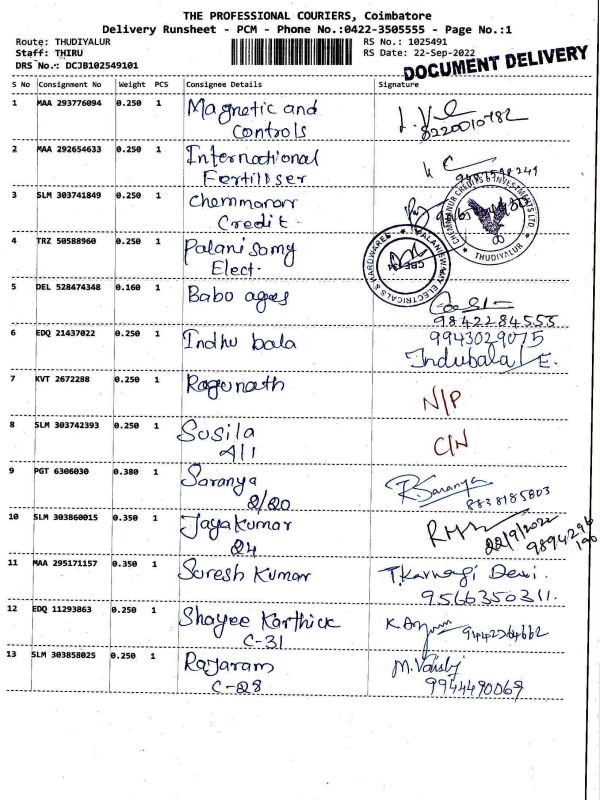 THE PROFESSIONAL COURIERS, Coimbatore
Delivery Runsheet - PCM - Phone No.:0422-3505555 - Page No.:1
Route: THUDIYALUR
RS No.: 1025491
Staff: THIRU
RS Date: 22-Sep-2022
DRS No.: DCJB102549101
DOCUMENT DELIVERY
S No Consignment No Weight PCS Consignee Details Signature
1 MAA 293776094 0.250 1 Magnetic and
Controls
8220010782
2 MAA 292654633 0.250 1 International
Fertiliser
3 SLM 303741849 0.250 1 Chemmanar
Credit.
CHEMMANUR CREDITS & INVESTMENTS LTD
THUDIYALUR
4 TRZ 50588960 0.250 1 Palanisamy
Elect.
ELECTRICALS & HARDWARES
5 DEL 528474348 0.160 1 Babo agees
9842284555
6 EDQ 21437022 0.250 1 Indhu bala
9943029075
Indubala E.
7 KVT 2672288 0.250 1 Ragunath
N/P
8 SLM 303742393 0.250 1 Susila
A11
C/N
9 PGT 6306030 0.380 1 Saranya
2/20
R.Saranya
8838185803
10 SLM 303860015 0.350 1 Jayakumar
Q4
22/9/2022
9894296
190
11 MAA 295171157 0.350 1 Suresh Kumar
T.Karnagi Devi.
9566350311.
12 EDQ 11293863 0.250 1 Shayee Karthick
C-31
9442264662
13 SLM 303858025 0.250 1 Rajaram
C-28
9944490069